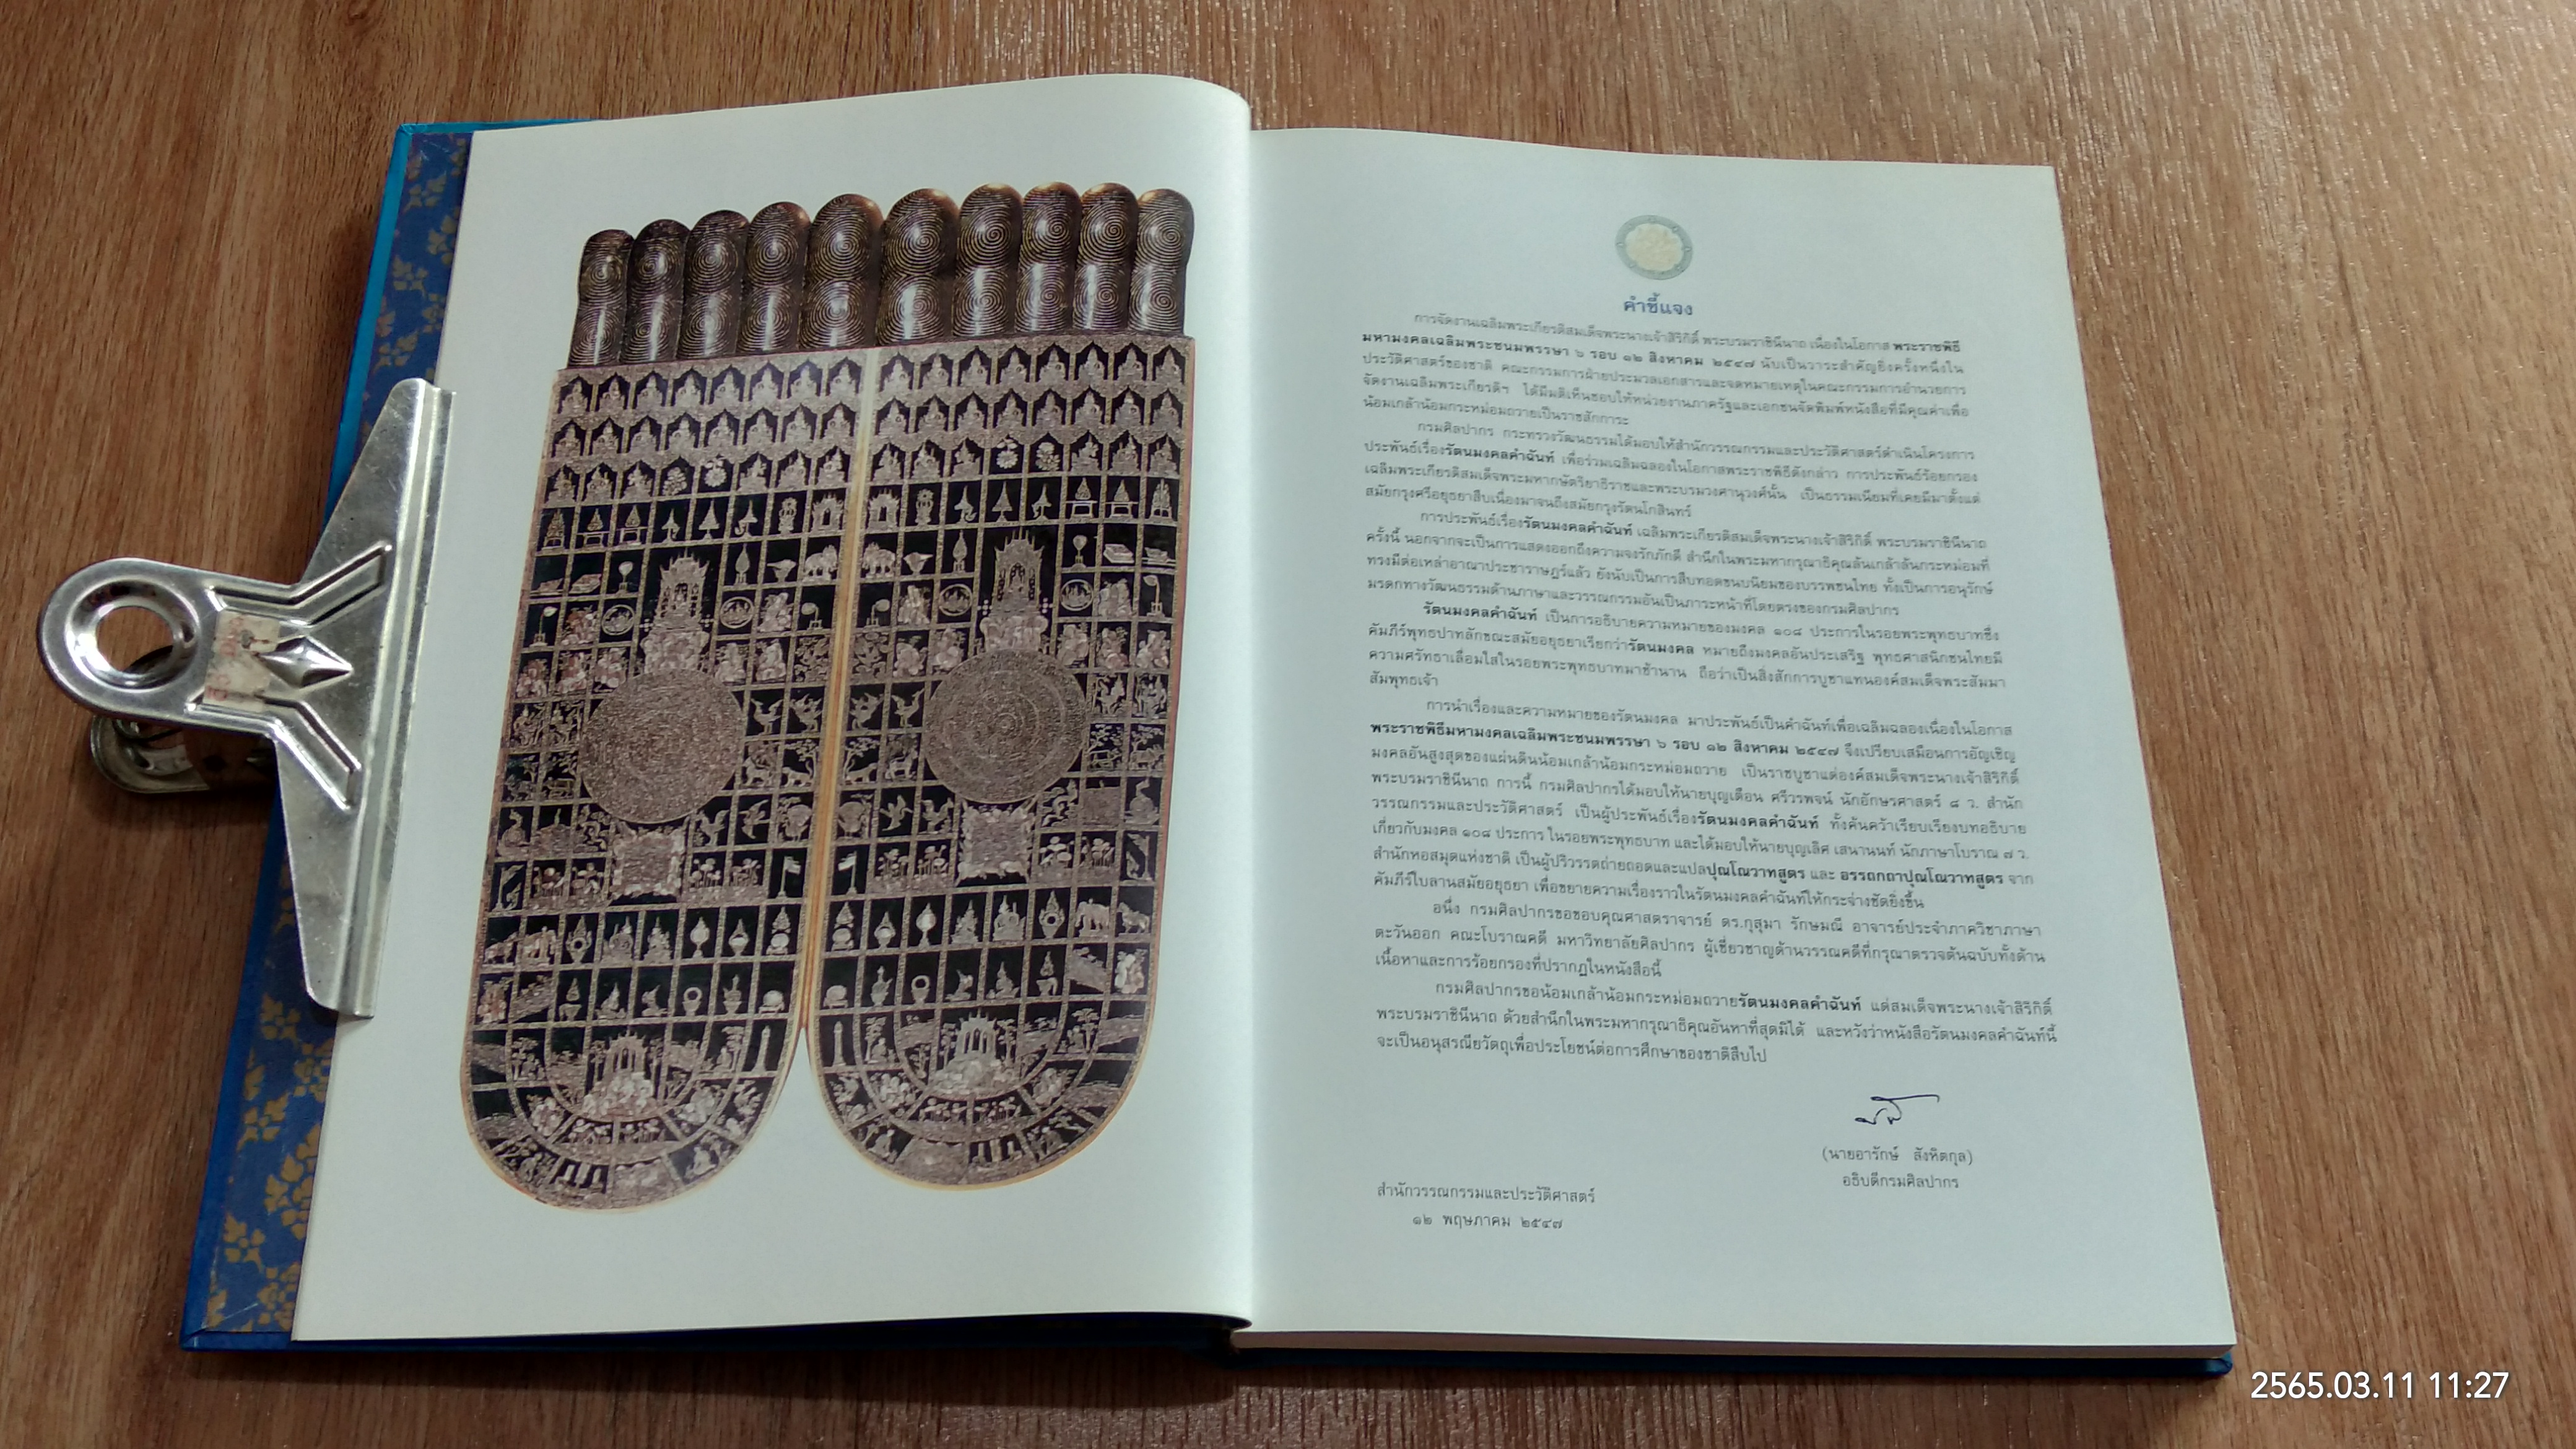 คำชี้แจง
การจัดงานเฉลิมพระเกียรติสมเด็จพระนางเจ้าสิริกิติ์ พระบรมราชินีนาถ เนื่องในโอกาส พระราชพิธี
มหามงคลเฉลิมพระชนมพรรษา ๖ รอบ ๑๒ สิงหาคม ๒๕๔๗ นับเป็นวาระสำคัญยิ่งครั้งหนึ่งใน
ประวัติศาสตร์ของชาติ คณะกรรมการฝ่ายประมวลเอกสารและจดหมายเหตุในคณะกรรมการอำนวยการ
จัดงานเฉลิมพระเกียรติฯ ได้มีมติเห็นชอบให้หน่วยงานภาครัฐและเอกชนจัดพิมพ์หนังสือที่มีคุณค่าเพื่อ
น้อมเกล้าน้อมกระหม่อมถวายเป็นราชสักการะ
กรมศิลปากร กระทรวงวัฒนธรรมได้มอบให้สำนักวรรณกรรมและประวัติศาสตร์ดำเนินโครงการ
ประพันธ์เรื่องรัตนมงคลคำฉันท์ เพื่อร่วมเฉลิมฉลองในโอกาสพระราชพิธีดังกล่าว การประพันธ์ร้อยกรอง
เฉลิมพระเกียรติสมเด็จพระมหากษัตริยาธิราชและพระบรมวงศานุวงศ์นั้น เป็นธรรมเนียมที่เคยมีมาตั้งแต่
สมัยกรุงศรีอยุธยาสืบเนื่องมาจนถึงสมัยกรุงรัตนโกสินทร์
การประพันธ์เรื่องรัตนมงคลคำฉันท์ เฉลิมพระเกียรติสมเด็จพระนางเจ้าสิริกิติ์ พระบรมราชินีนาถ
ครั้งนี้ นอกจากจะเป็นการแสดงออกถึงความจงรักภักดี สำนึกในพระมหากรุณาธิคุณล้นเกล้าล้นกระหม่อมที่
ทรงมีต่อเหล่าอาณาประชาราษฎร์แล้ว ยังนับเป็นการสืบทอดขนบนิยมของบรรพชนไทย ทั้งเป็นการอนุรักษ์
มรดกทางวัฒนธรรมด้านภาษาและวรรณกรรมอันเป็นภาระหน้าที่โดยตรงของกรมศิลปากร
รัตนมงคลคำฉันท์ เป็นการอธิบายความหมายของมงคล ๑๐๘ ประการในรอยพระพุทธบาทซึ่ง
คัมภีร์พุทธปาทลักขณะสมัยอยุธยาเรียกว่ารัตนมงคล หมายถึงมงคลอันประเสริฐ พุทธศาสนิกชนไทยมี
ความศรัทธาเลื่อมใสในรอยพระพุทธบาทมาช้านาน ถือว่าเป็นสิ่งสักการบูชาแทนองค์สมเด็จพระสัมมา
สัมพุทธเจ้า
การนำเรื่องและความหมายของรัตนมงคล มาประพันธ์เป็นคำฉันท์เพื่อเฉลิมฉลองเนื่องในโอกาส
พระราชพิธีมหามงคลเฉลิมพระชนมพรรษา ๖ รอบ ๑๒ สิงหาคม ๒๕๔๗ จึงเปรียบเสมือนการอัญเชิญ
มงคลอันสูงสุดของแผ่นดินน้อมเกล้าน้อมกระหม่อมถวาย เป็นราชบูชาแด่องค์สมเด็จพระนางเจ้าสิริกิติ์
พระบรมราชินีนาถ การนี้ กรมศิลปากรได้มอบให้นายบุญเตือน ศรีวรพจน์ นักอักษรศาสตร์ ๘ ว. สำนัก
วรรณกรรมและประวัติศาสตร์ เป็นผู้ประพันธ์เรื่องรัตนมงคลคำฉันท์ ทั้งค้นคว้าเรียบเรียงบทอธิบาย
เกี่ยวกับมงคล ๑๐๘ ประการ ในรอยพระพุทธบาท และได้มอบให้นายบุญเลิศ เสนานนท์ นักภาษาโบราณ ๗ ว.
สำนักหอสมุดแห่งชาติ เป็นผู้ปริวรรตถ่ายถอดและแปลปุณโณวาทสูตร และ อรรถกถาปุณโณวาทสูตร จาก
คัมภีร์ใบลานสมัยอยุธยา เพื่อขยายความเรื่องราวในรัตนมงคลคำฉันท์ให้กระจ่างชัดยิ่งขึ้น
อนึ่ง กรมศิลปากรขอขอบคุณศาสตราจารย์ ดร.กุสุมา รักษมณี อาจารย์ประจำภาควิชาภาษา
ตะวันออก คณะโบราณคดี มหาวิทยาลัยศิลปากร ผู้เชี่ยวชาญด้านวรรณคดีที่กรุณาตรวจต้นฉบับทั้งด้าน
เนื้อหาและการร้อยกรองที่ปรากฏในหนังสือนี้
กรมศิลปากรขอน้อมเกล้าน้อมกระหม่อมถวายรัตนมงคลคำฉันท์ แด่สมเด็จพระนางเจ้าสิริกิติ์
พระบรมราชินีนาถ ด้วยสำนึกในพระมหากรุณาธิคุณอันหาที่สุดมิได้ และหวังว่าหนังสือรัตนมงคลคำฉันท์นี้
จะเป็นอนุสรณียวัตถุเพื่อประโยชน์ต่อการศึกษาของชาติสืบไป
(นายอารักษ์ สังหิตกุล)
อธิบดีกรมศิลปากร
สำนักวรรณกรรมและประวัติศาสตร์
๑๒ พฤษภาคม ๒๕๔๗
2565.03.11 11:27